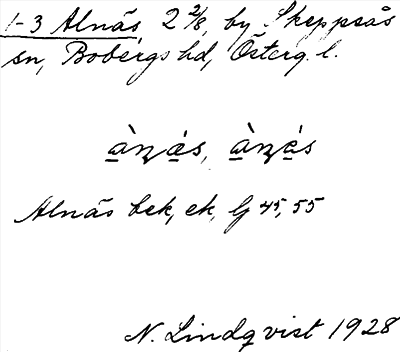 1-3 Alnäs, 2 2/8, by Skeppsås
sn, Bobergs hd, Österg. l.
Alnäs bek, ek, G 45, 55
N. Lindqvist 1928